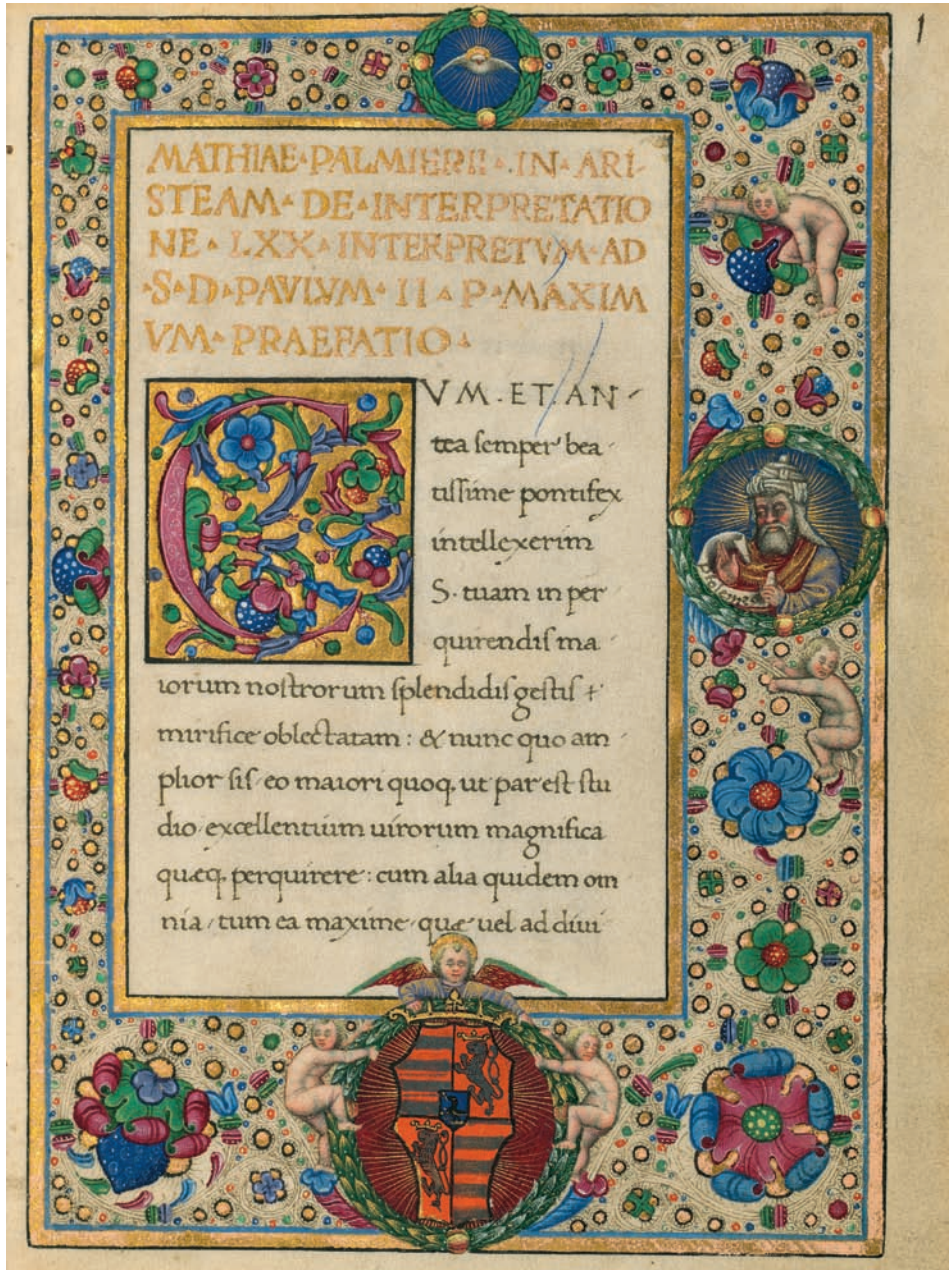 1
MATHIAE·PALMIERII·IN·ARI-
STEAM·DE·INTERPRETATIO
NE·LXX·INTERPRETVM·AD
·S·D·PAVLVM·II·P·MAXIM
VM·PRAEFATIO·
CVM·ET·AN-
tea semper bea-
tissime pontifex
intellexerim
S. tuam in per-
quirendis ma-
iorum nostrorum splendidis gestis +
mirifice oblectatam: & nunc quo am-
plior sis eo maiori quoq. ut par est stu
dio excellentium uirorum magnifica
quæq. perquirere: cum alia quidem om
nia, tum ea maxime quæ uel ad diui